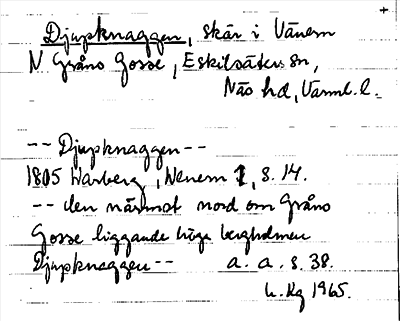 +
Djupknaggen, skär i Vänern
N Gråns Gosse, Eskilsäters sn,
Näs hd, Värml. l.
-- Djupknaggen --
1805 Warberg, Wenern 1, s. 14.
-- den närmast nord om Gråns
Gosse liggande höga bergholmen
Djupknaggen -- a. a. s. 38.
1965.